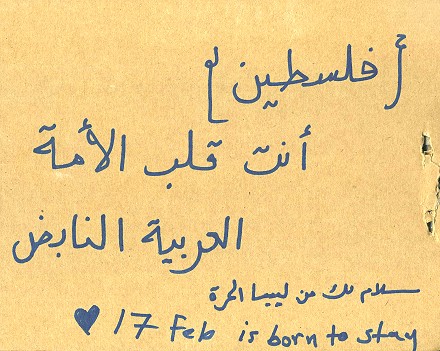 {فلسطين}
أنت قلب الأمة
العربية النابض
سلام لك من ليبيا الحرة
♥ 17 Feb is born to stay